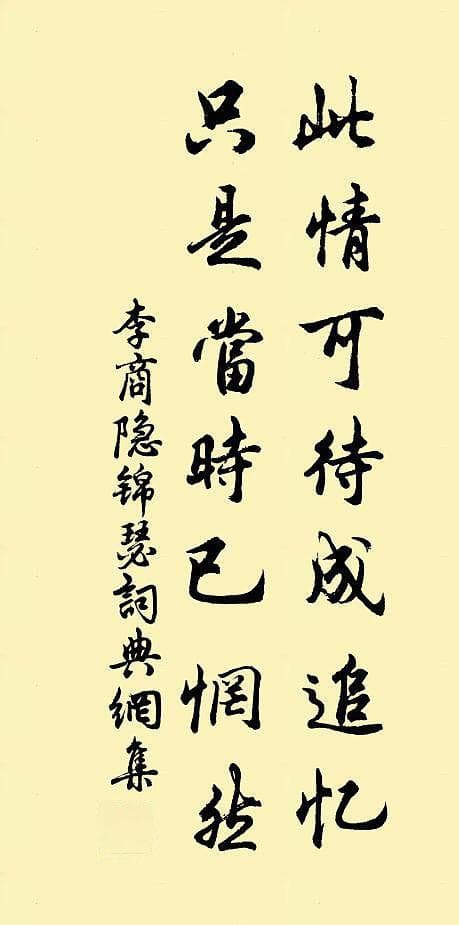 此情可待成追忆
只是當時已惘然
李商隐锦瑟詞典網集